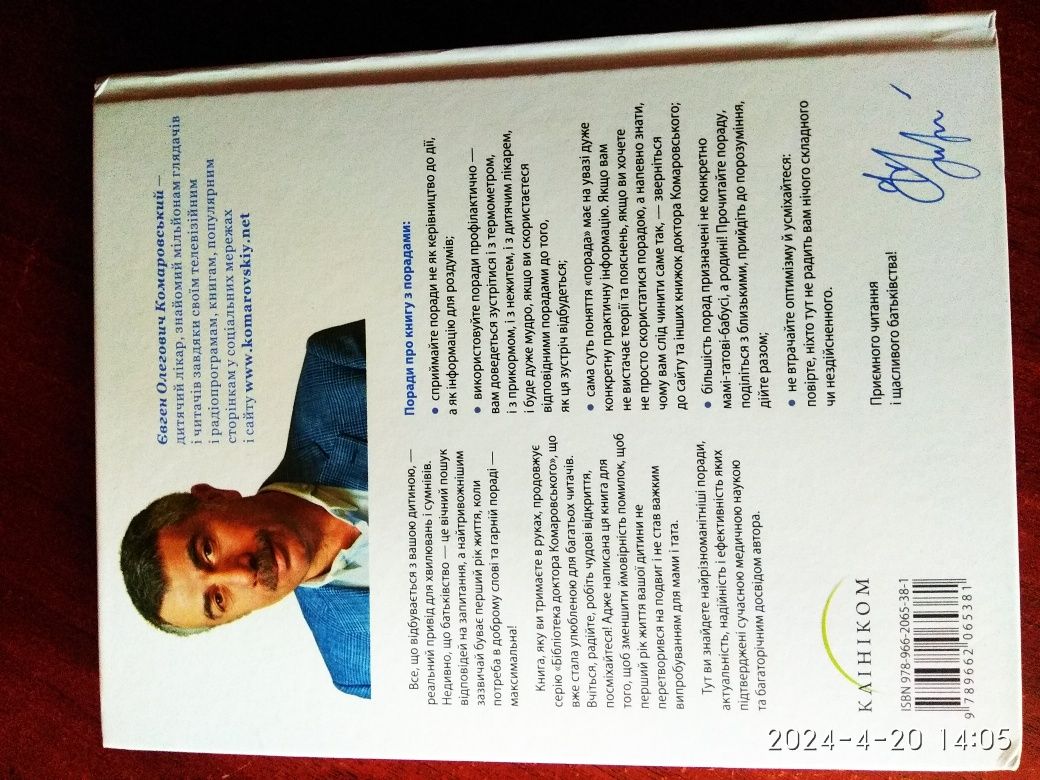 Євген Олегович Комаровський —
дитячий лікар, знайомий мільйонам глядачів
і читачів завдяки своїм телевізійним
і радіопрограмам, книгам, популярним
сторінкам у соціальних мережах
і сайту www.komarovskiy.net
Все, що відбувається з вашою дитиною, —
реальний привід для хвилювань і сумнівів.
Недивно, що батьківство — це вічний пошук
відповідей на запитання, а найтривожнішим
зазвичай буває перший рік життя, коли
потреба в доброму слові та гарній пораді —
максимальна!
Книга, яку ви тримаєте в руках, продовжує
серію «Бібліотека доктора Комаровського», що
вже стала улюбленою для багатьох читачів.
Вчіться, радійте, робіть чудові відкриття,
посміхайтеся! Адже написана ця книга для
того, щоб зменшити ймовірність помилок, щоб
перший рік життя вашої дитини не
перетворився на подвиг і не став важким
випробуванням для мами і тата.
Тут ви знайдете найрізноманітніші поради,
актуальність, надійність і ефективність яких
підтверджені сучасною медичною наукою
та багаторічним досвідом автора.
Поради про книгу з порадами:
• сприймайте поради не як керівництво до дії,
а як інформацію для роздумів;
• використовуйте поради профілактично —
вам доведеться зустрітися і з термометром,
і з прикормом, і з нежитем, і з дитячим лікарем,
і буде дуже мудро, якщо ви скористаєтеся
відповідними порадами до того,
як ця зустріч відбудеться;
• сама суть поняття «порада» має на увазі дуже
конкретну практичну інформацію. Якщо вам
не вистачає теорії та пояснень, якщо ви хочете
не просто скористатися порадою, а напевно знати,
чому вам слід чинити саме так, — зверніться
до сайту та інших книжок доктора Комаровського;
• більшість порад призначені не конкретно
мамі-татові-бабусі, а родині! Прочитайте пораду,
поділіться з близькими, прийдіть до порозуміння,
дійте разом;
• не втрачайте оптимізму й усміхайтеся:
повірте, ніхто тут не радить вам нічого складного
чи нездійсненного.
Приємного читання
і щасливого батьківства!
КЛІНІКОМ
ISBN 978-966-2065-38-1
9 789662 065381
2024-4-20 14:05